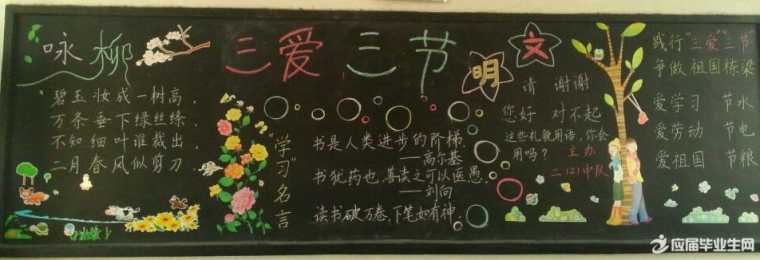 咏柳
碧玉妆成一树高，
万条垂下绿丝绦，
不知细叶谁裁出，
二月春风似剪刀。
三爱三节
"学习"名言
书是人类进步的阶梯，
——高尔基
书犹药也，善读之可以医愚，
——刘向
读书破万卷，下笔如有神，
明文
请 谢谢
您好 对不起
这些礼貌用语，你会
用吗？ 主办
二（2）中队
践行"三爱"三节
争做祖国栋梁
爱学习 节水
爱劳动 节电
爱祖国 节粮
应届毕业生网